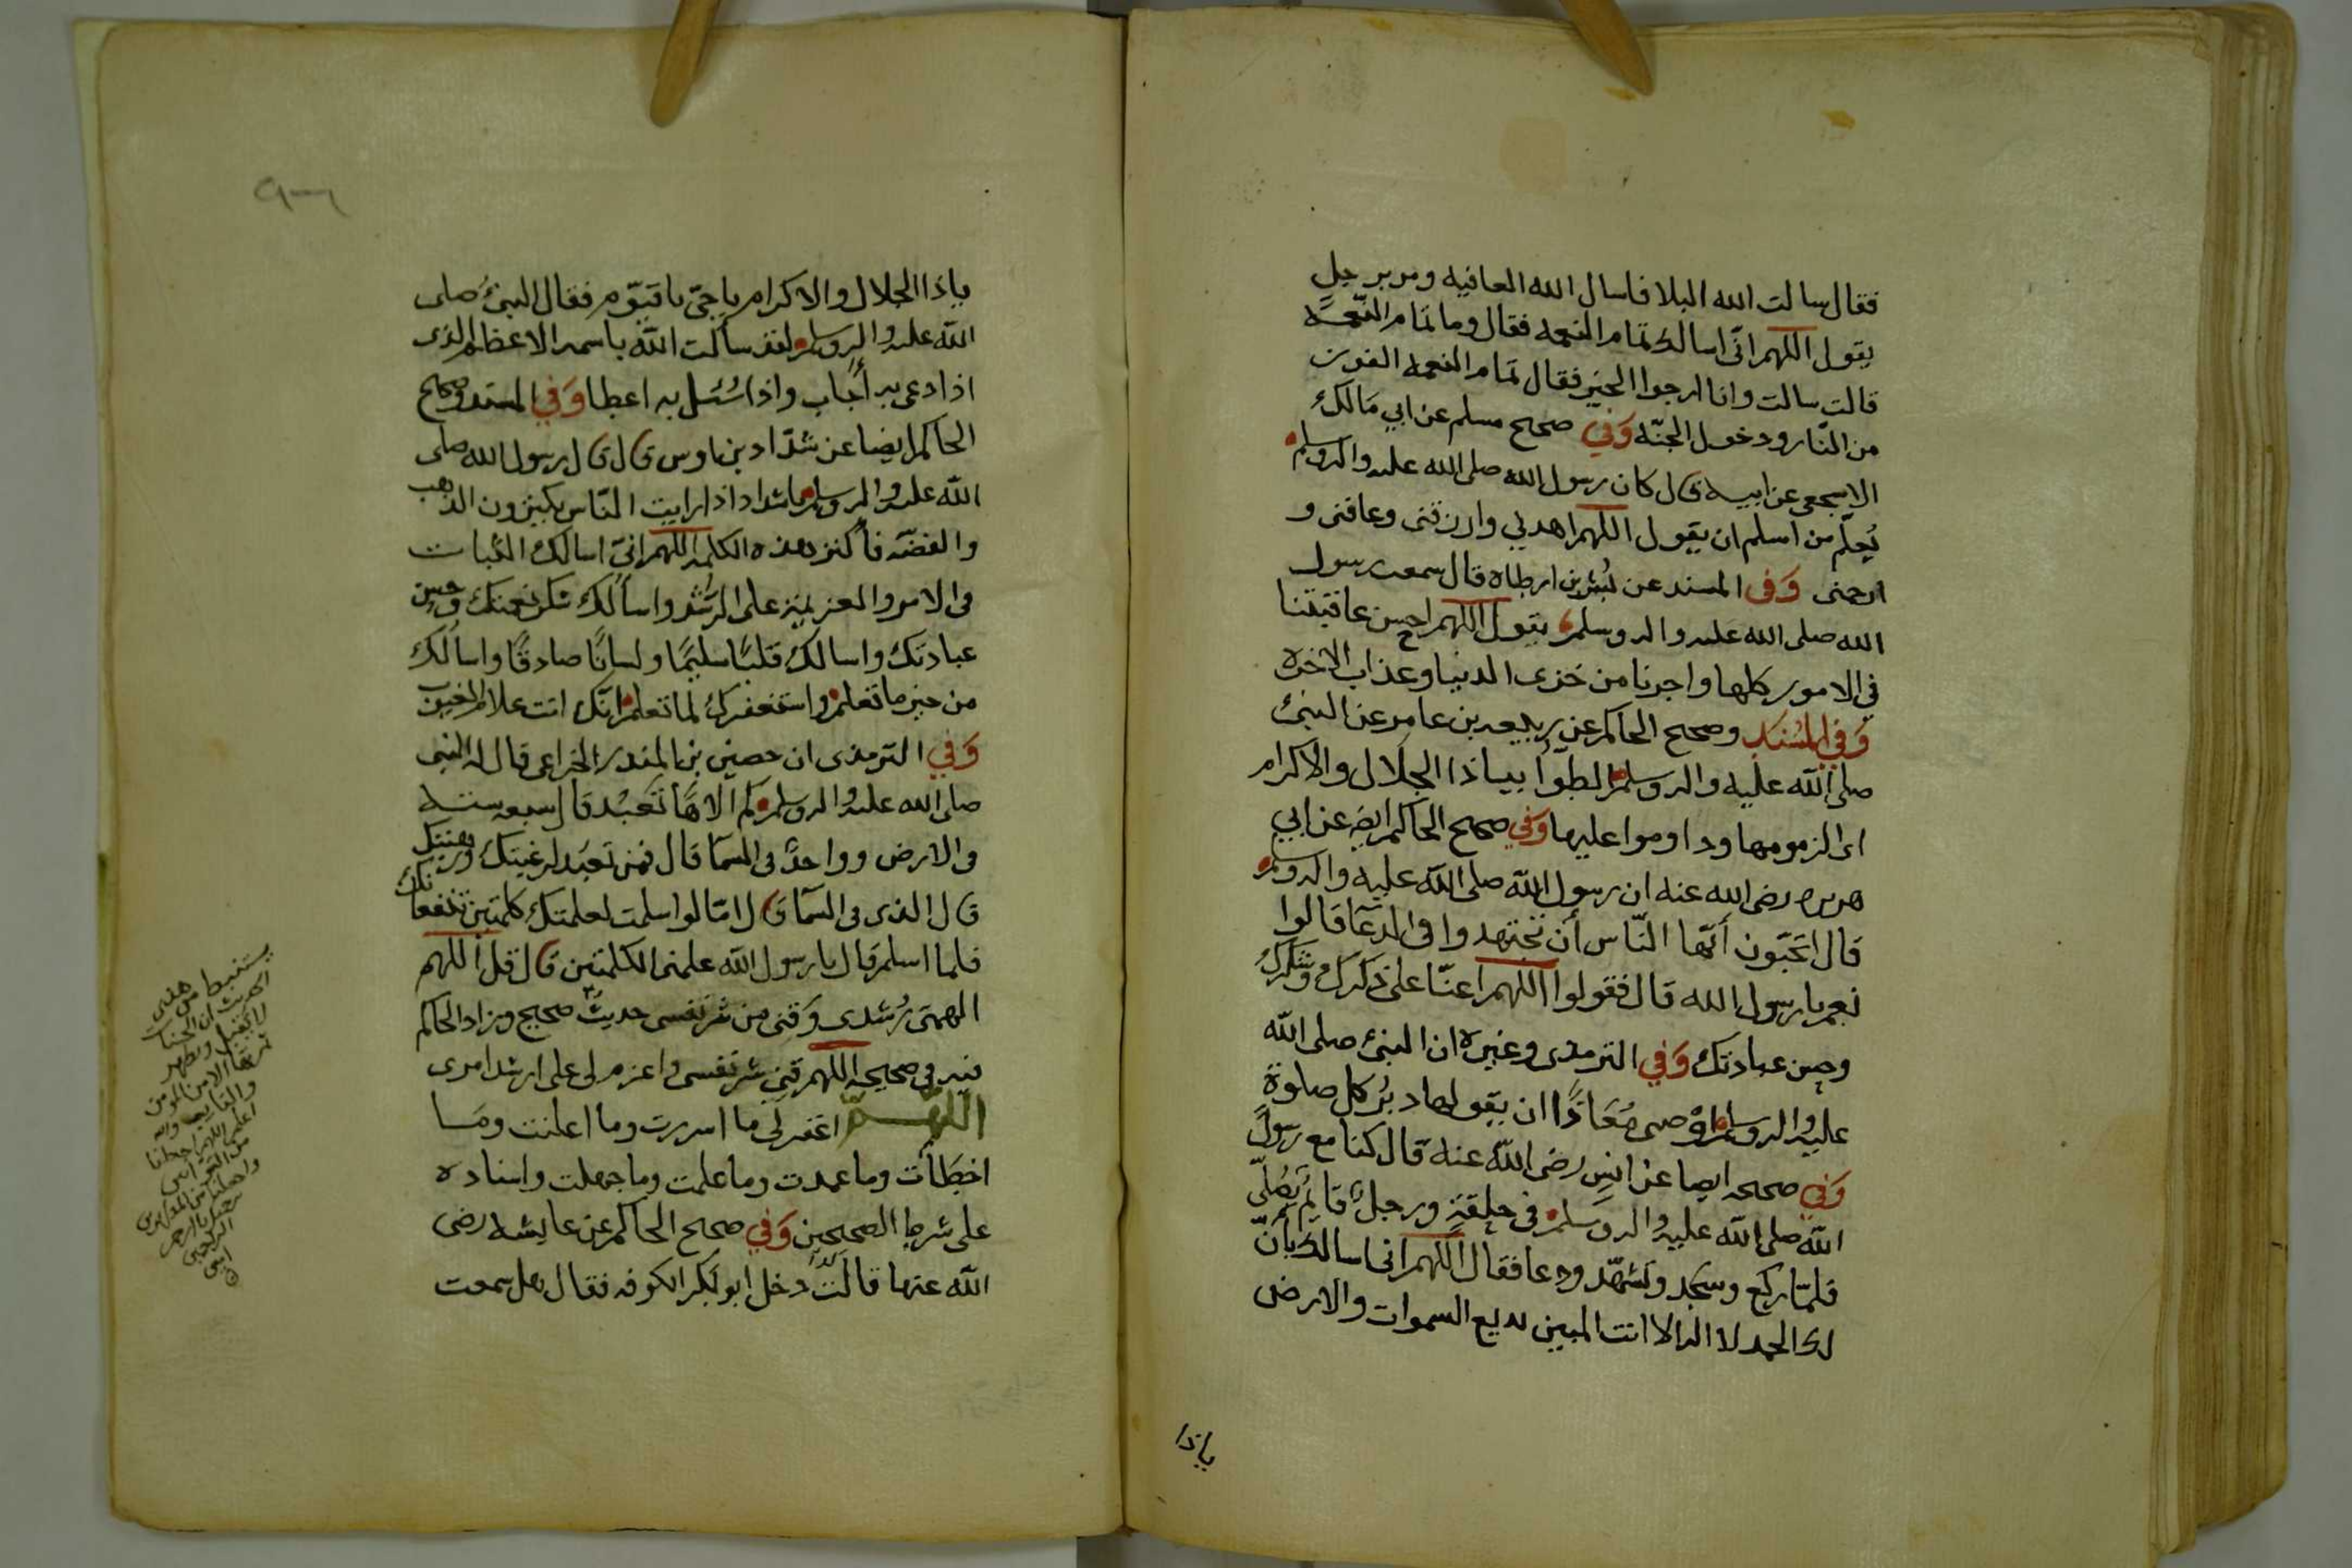 فقال سالت الله البلا فاسال الله العافيه ومر برجل
يقول اللهم اني اسالك تمام النعمه فقال وما تمام النعمة
قالت سالت وانا ارجوا الخير فقال تمام النعمه الفوز
من النار ودخول الجنه وفي صحيح مسلم عن ابي مالك
الاشجعي عن ابيه قال كان رسول الله صلى الله عليه واله وسلم
يُعلّم من اسلم ان يقول اللهم اهدني وارزقني وعافني و
ارحمني وفي المسند عن بُسْر بن ارطاه قال سمعت رسول
الله صلى الله عليه واله وسلم يقول اللهم احسن عاقبتنا
في الامور كلها واجرنا من خزى الدنيا وعذاب الاخره
وفي المُسْنَد وصحيح الحاكم عن ربيعه بن عامر عن النبيّ
صلى الله عليه واله وسلم الظوّا بياذا الجلال والاكرام
اى الزموها وداوموا عليها وفي صحيح الحاكم ايضا عن ابي
هريره رضى الله عنه ان رسول الله صلى الله عليه واله وسلم
قال اتحبّون أيّها النّاس أن تجتهدوا في الدعآ قالوا
نعم يا رسول الله قال فقولوا اللهم اعنّا على ذكرك وشكرك
وحسن عبادتك وفي الترمذى وغيره ان النبيّ صلى الله
عليه واله وسلم اوصى مُعَاذًا ان يقولها دبُر كل صلوة
وفي صحيحه ايضا عن انس رضى الله عنه قال كنا مع رسول
الله صلى الله عليه واله وسلم في حلقةٍ ورجلٌ قايمٌ يُصَلّي
فلمّا ركع وسجد وتشهّد ودعا فقال اللهم انى اسالك بأنّ
لك الحمد لا اله الا انت بديع السموات والارض
ياذا
ياذا الجلال والاكرام يا حيّ يا قيّوم فقال النبيّ صلى
الله عليه واله وسلم لقد سألت الله باسمه الاعظم الذى
اذا دعى به أجاب واذا سُئل به اعطا وفي المسند وصحيح
الحاكم ايضا عن شدّاد بن اوس قال قال رسول الله صلى
الله عليه واله وسلم يا شداد اذا رايت النّاس يكنزون الذهب
والفضّه فأكنز هذه الكلمه اللهم انيّ اسالك الثبات
في الامور والعزيمة على الرُّشد واسألك شكر نعمتك وحسن
عبادتك واسالك قلبًا سليمًا ولسانًا صادقًا واسالك
من خير ما تعلم واستغفرك لما تعلم انّك انت علام الغيوب
وفي الترمذى ان حصين بن المنذر الخزاعى قال له النبى
صلى الله عليه واله وسلم كم الاهًا تَعْبُد قال سبعه ستة
في الارض وواحدٌ في السمآ قال فمن تعبد لرغبتك ورهبتك
قال الذى في السمآ قال امّا لو اسلمت لعلمتك كلمتين تنفعانك
فلما اسلم قال يا رسول الله علمنى الكلمتين قال قل اللهم
الهمنى رُشدى وقنى من شر نفسى حديثٌ صحيح وزاد الحاكم
فيه في صحيحه اللهم قني شر نفسى واعزم لى على ارشد امرى
اللهم اغفر لى ما اسررت وما اعلنت وما
اخطأت وما عمدت وما علمت وما جهلت واسناده
على شرط الصحيحين وفي صحيح الحاكم عن عايشه رضى
الله عنها قالت دخل ابو بكر فقال هل سمعت
يستنبط من هذى